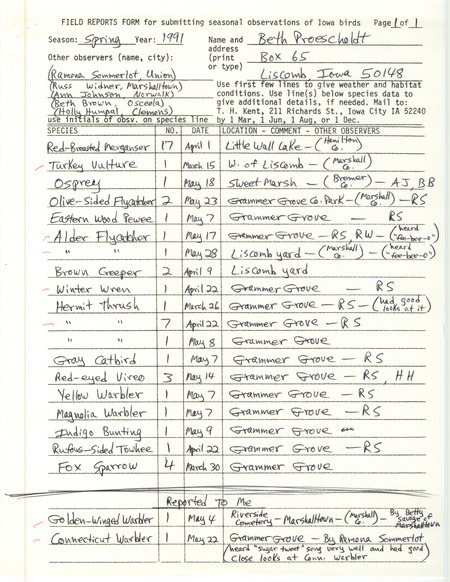 FIELD REPORTS FORM for submitting seasonal observations of Iowa birds Page 1 of 1
Season: Spring Year: 1991 Name and Beth Proescholdt
address
Other observers (name, city): (print Box 65
or type)
(Ramona Sommerlot, Union) Liscomb, Iowa 50148
(Russ Widner, Marshalltown) Use first few lines to give weather and habitat
(Ann Johnson, Norwalk) conditions. Use line(s) below species data to
(Beth Brown Osceola) give additional details, if needed. Mail to:
(Holly Humpal, Clemens) T. H. Kent, 211 Richards St., Iowa City IA 52240
use initials of obsv. on species line by 1 Mar, 1 Jun, 1 Aug, or 1 Dec.
SPECIES NO. DATE LOCATION - COMMENT - OTHER OBSERVERS
Red-Breasted Merganser 17 April 1 Little Wall Lake - (Hamilton Co.)
Turkey Vulture 1 March 15 W. of Liscomb - (Marshall Co.)
Osprey 1 May 18 Sweet Marsh - (Bremer Co.) - AJ, BB
Olive-Sided Flycatcher 2 May 23 Grammer Grove Co. Park - (Marshall Co.) - RS
Eastern Wood Pewee 1 May 7 Grammer Grove - RS
Alder Flycatcher 1 May 17 Grammer Grove - RS, RW - (heard "fee-bee-o")
" " 1 May 28 Liscomb yard - (Marshall Co.) - (heard "fee-bee-o")
Brown Creeper 2 April 9 Liscomb yard
Winter Wren 1 April 22 Grammer Grove - RS
Hermit Thrush 1 March 26 Grammer Grove - RS - (had good looks at it)
" " 7 April 22 Grammer Grove - RS
" " 1 May 8 Grammer Grove
Gray Catbird 1 May 7 Grammer Grove - RS
Red-eyed Vireo 3 May 14 Grammer Grove - RS, HH
Yellow Warbler 1 May 7 Grammer Grove - RS
Magnolia Warbler 1 May 7 Grammer Grove - RS
Indigo Bunting 1 May 9 Grammer Grove
Rufous-Sided Towhee 1 April 22 Grammer Grove - RS
Fox Sparrow 4 March 30 Grammer Grove
Reported to Me
Golden-Winged Warbler 1 May 4 Riverside Cemetery - Marshalltown - (Marshall Co.) - By Betty Savage of Marshalltown
Connecticut Warbler 1 May 22 Grammer Grove - By Ramona Sommerlot
(heard "sugar tweet" song very well and had good
close looks at Conn. Warbler)